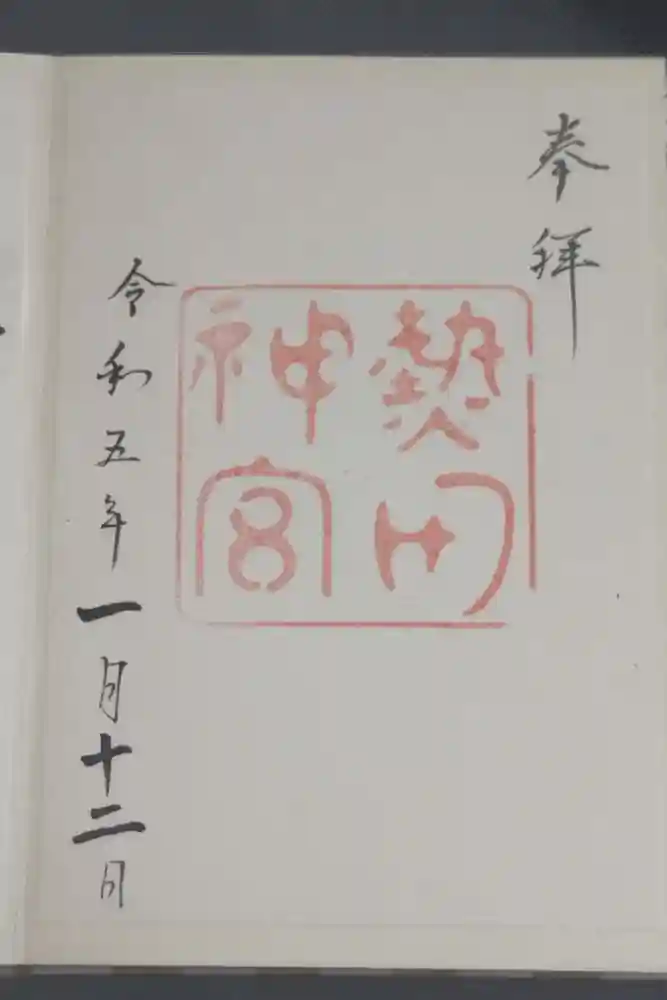 奉拜
熱田
神宮
令和五年一月十二日